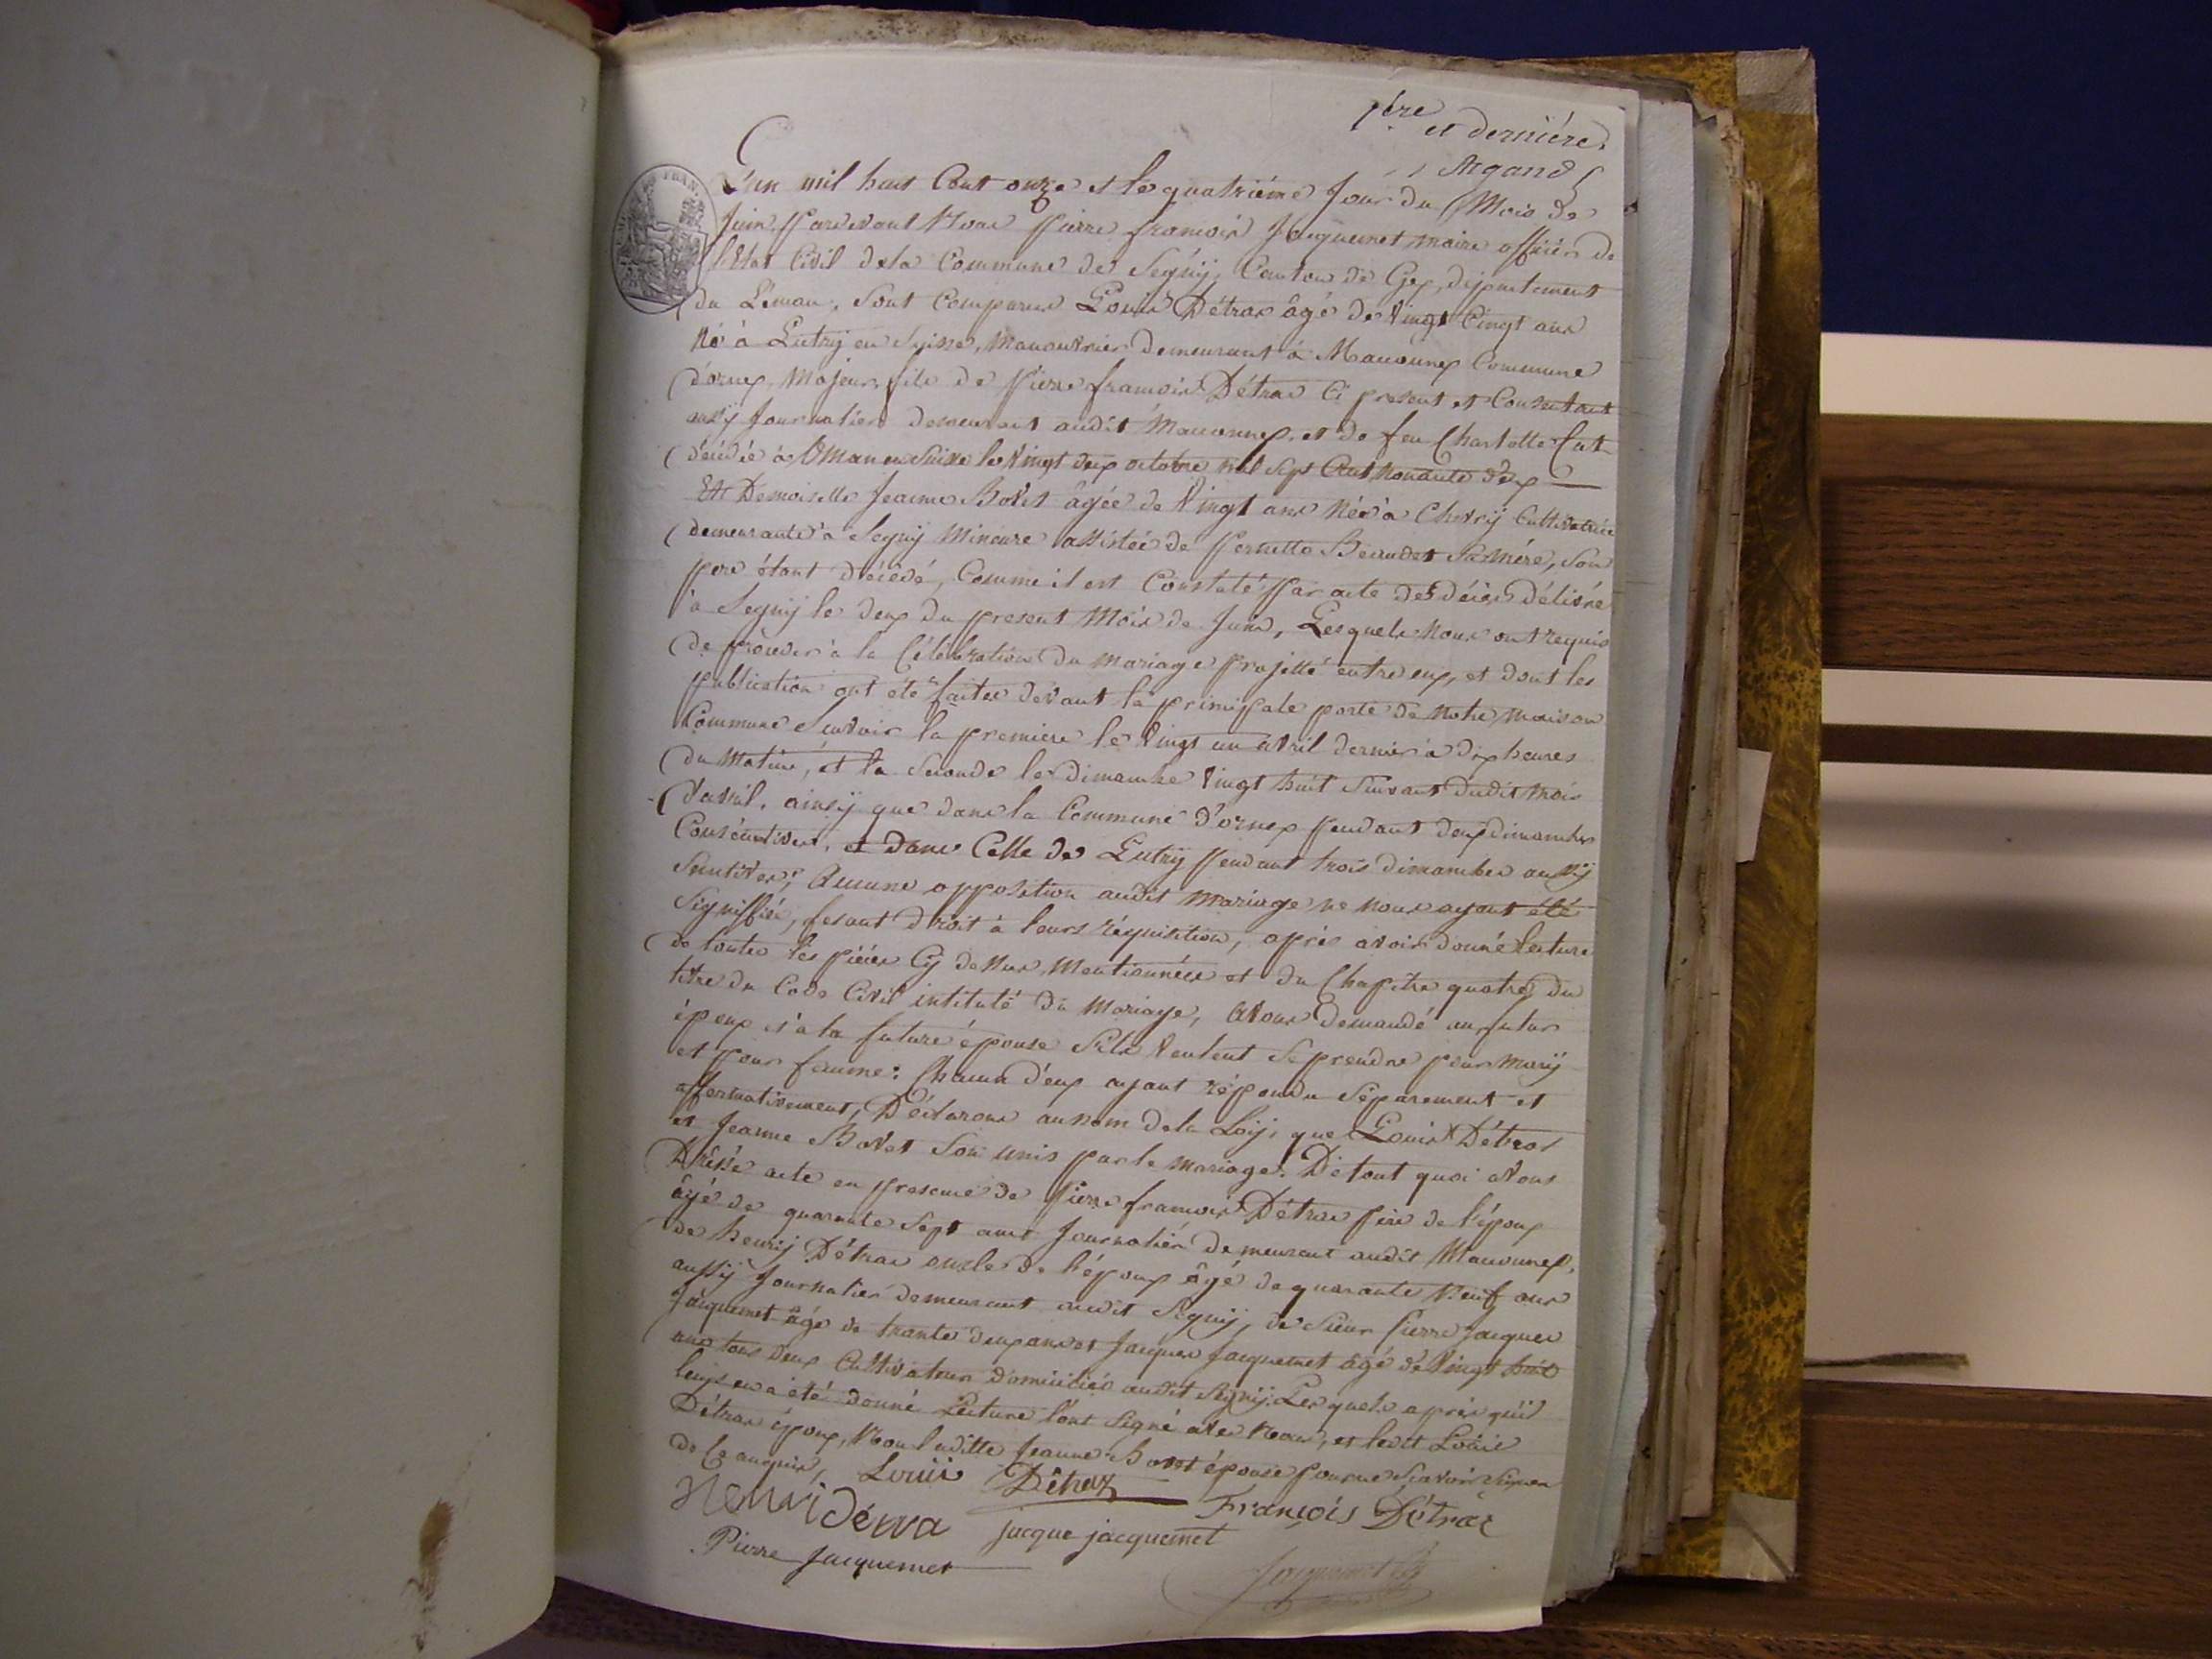 1ère et dernière.
Argand
L'an mil huit Cent onze et le quatrième Jour du Mois de
Juin, Pardevant Nous Pierre francois Jacquemet maire officier de
l'Etat Civil de la Commune de Segnÿ, Canton de Gex, département
du Léman, Sont Comparus Louis Détras âgé de Vingt Cinqt ans
Né à Lutrÿ en Suisse, Manouvrier demeurant à Maconnex Commune
d'ornex, Majeur, fils de Pierre francois Détras Ci present et Consentant
aussÿ Journalier demeurant audit Maconnex, et de feu Charlotte
décédée à en Suisse le Vingt deux octobre mil Sept Cent Nonante deux
Et Demoiselle Jeanne Bovet âgée de Vingt ans Née à Chevrÿ Cultivatrice
demeurante à Segnÿ Mineure assistée de Pernette Sa Mère, Son
pere étant décédé, Comme il est Constaté Par acte de décès délivré
à Segnÿ le deux du present Mois de Juin, Lesquels Nous ont requis
de proceder à la Célébration du Mariage Projetté entre eux, et dont les
publication ont été faites devant la principale porte de Notre Maison
Commune Scavoir la premiere le Vingt un avril dernier à dix heures
du Matin, et la Seconde le dimanche Vingt huit Suivant dudit Mois
d'avril, ainsÿ que dans la Commune d'ornex Pendant deux dimanches
Consécutives, et dans Celle de Lutrÿ Pendant trois dimanches aussÿ
Aucune opposition audit Mariage ne nous ayant été
Signiffiée, fesant droit à leurs réquisition, après avoir donné lecture
de toutes les pièces Cÿ dessus Mentionnées et du Chapitre quatre du
titre du Code Civil intitulé du Mariage, Avons demandé au futur
époux et à la future épouse S'ils Veulent Se prendre pour Marÿ
et pour femme: Chacun d'eux ayant répondu Séparement et
affermativement, Déclarons au nom de la Loÿ, que Louis Détras
et Jeanne Bovet Son unis par le Mariage. De tout quoi avons
Dressé acte en presence de Pierre francois Détras Père de l'époux
âgé de quarante Sept ans Journalier demeurant audit Maconnex,
de henrÿ Détras oncle de l'époux âgé de quarante Neuf ans
aussÿ Journalier demeurant audit Segnÿ, de Sieur Pierre Jacques
Jacquemet âgé de trante deux ans et Jacques Jacquemet âgé de Vingt huit
ans tous deux Cultivateurs domiciliés audit Segnÿ; Lesquels après qu'il
leurs en a été donné Lecture l'ont Signé avec Nous, et ledit Louis
Détras époux, Non laditte Jeanne Bovet épouse Pour ne Scavoir Signer
de Ce enquis,
Louis Détraz
Henri détra François Détraz
jacque jacquemet
Pierre Jacquemet
Jacquemet